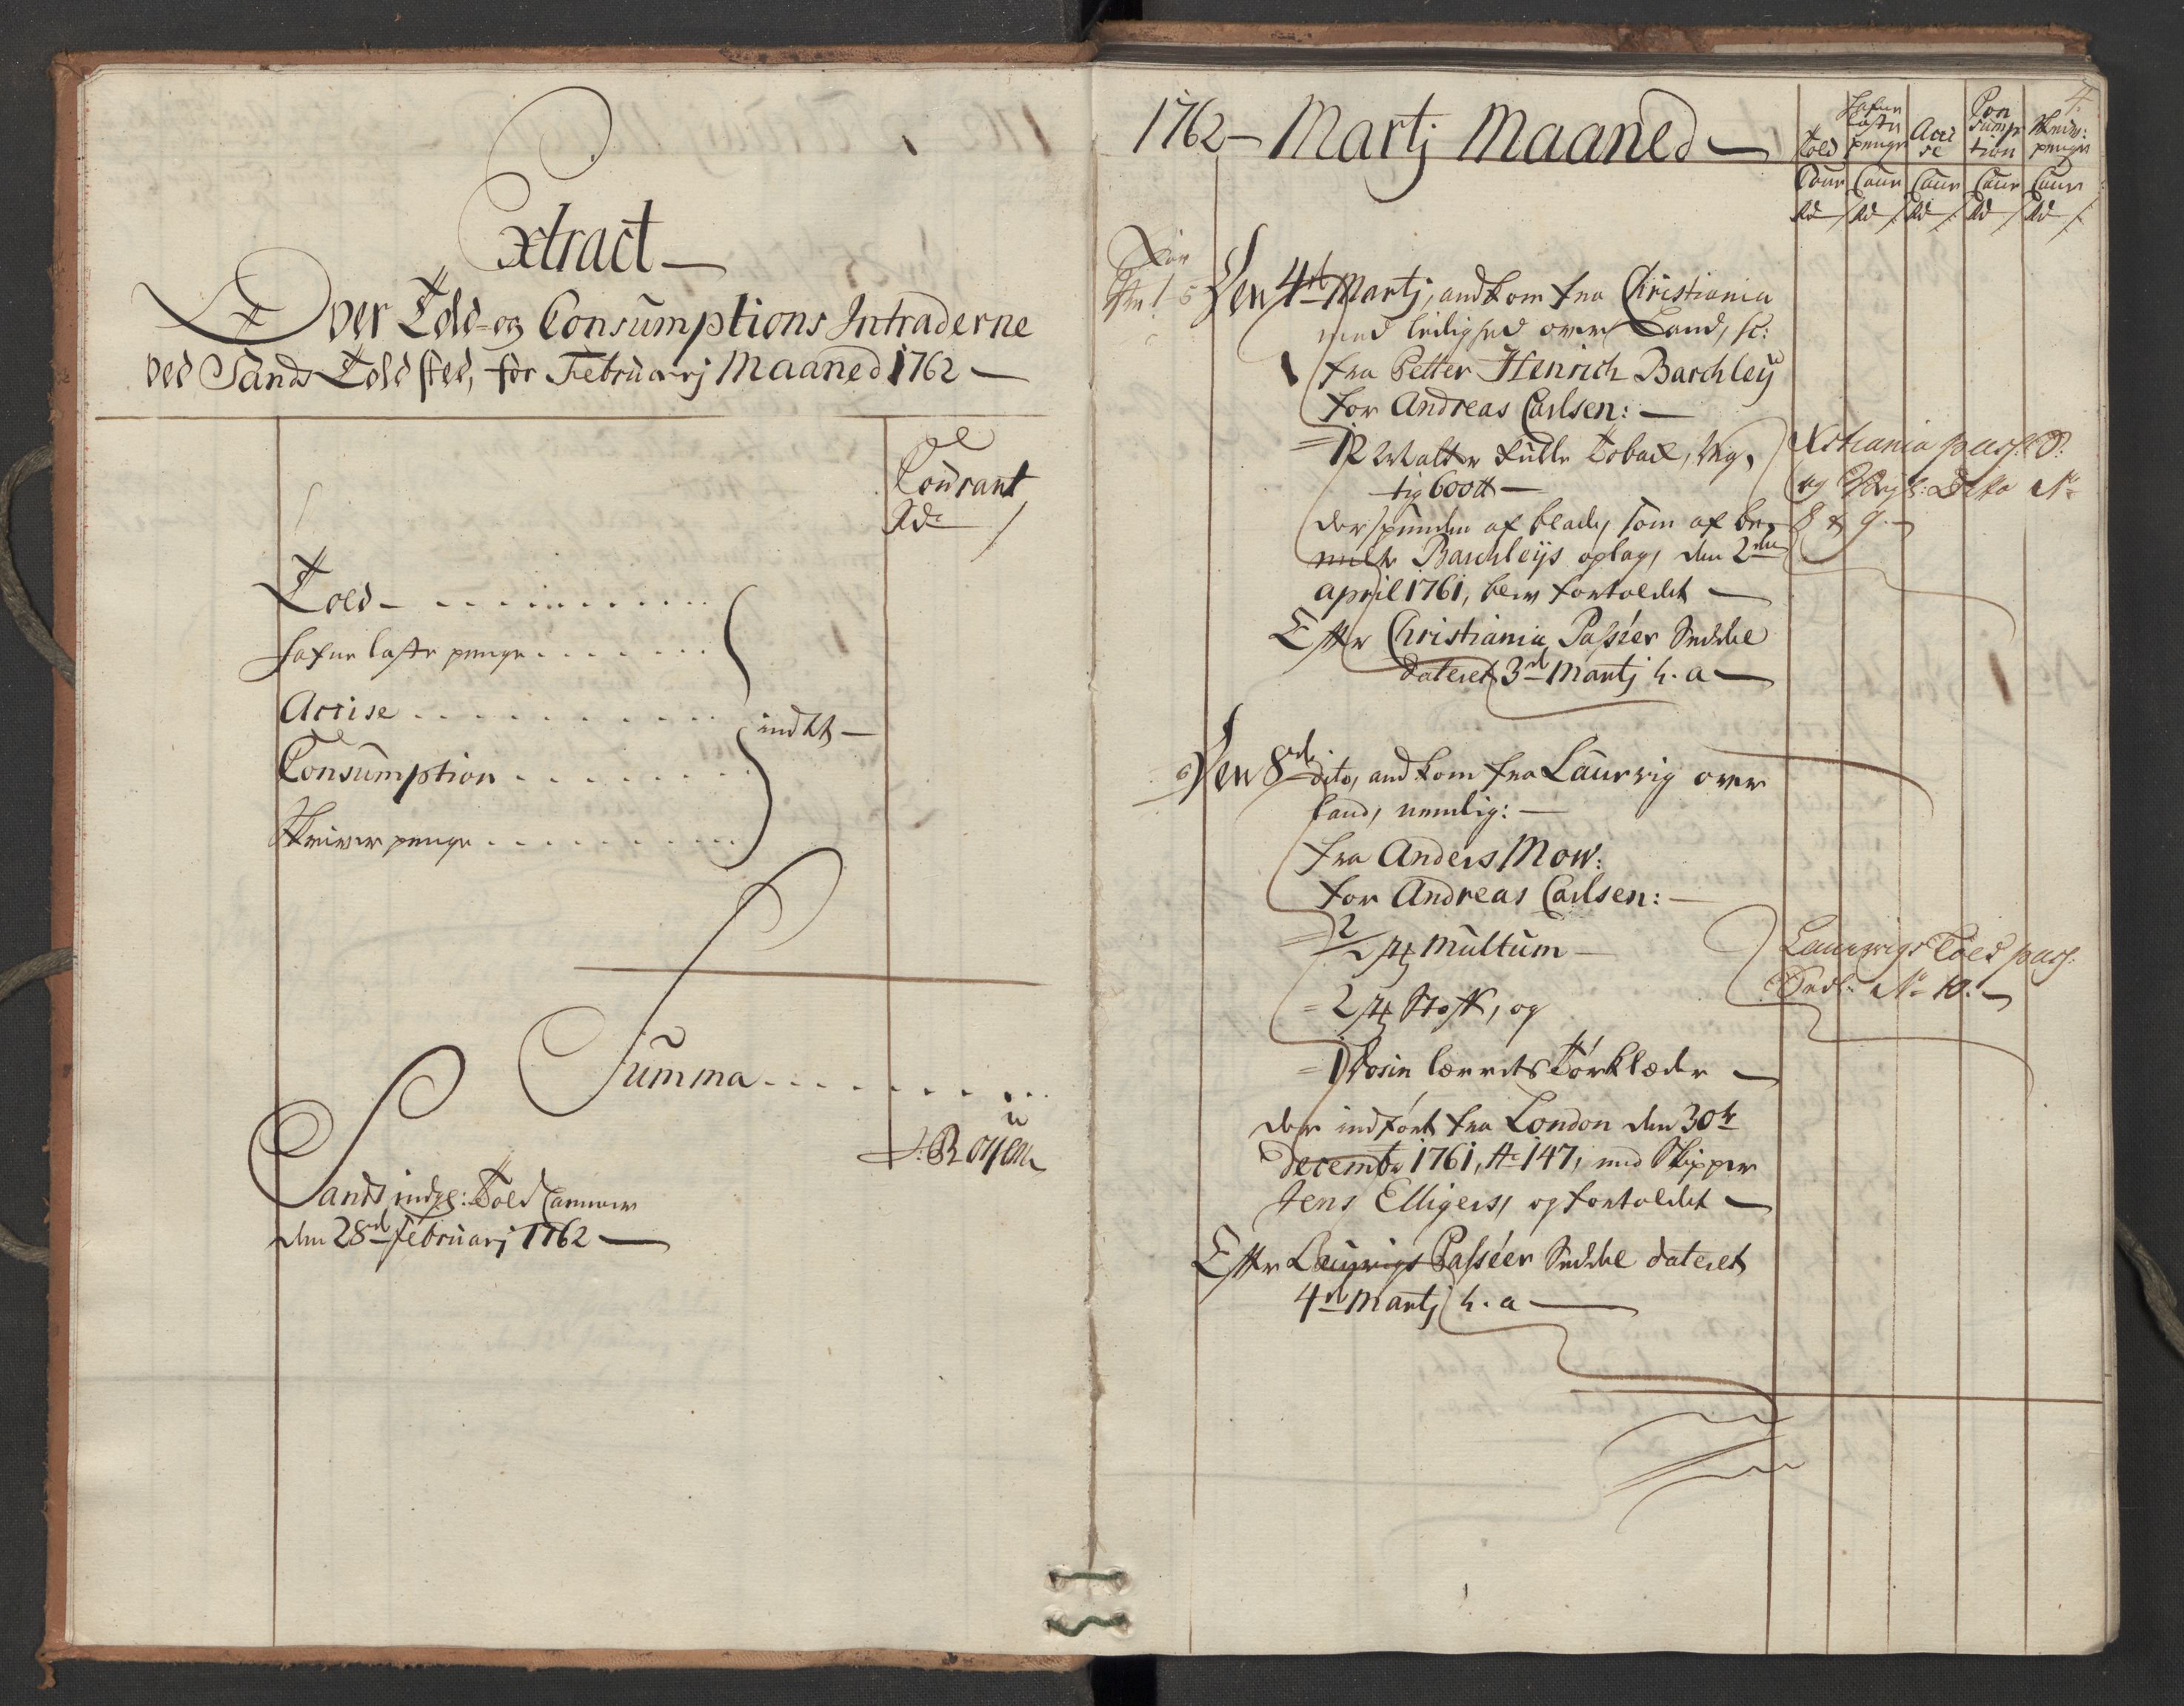 Extract
Over Told- og Consumptions Intraderne
ved Sands Toldsted, for Februarj Maaned 1762
Courant
Rd
Told
hafne laste penge
Accise
indtet
Consumption
Skriver penge
Summa
Sands Told Cammer
den 28de Februarj 1762
4
1762 - Martj Maaned
Told
hafne
laste
penge
Acci
se
Con
sump
tion
Skriv:
penge
Cour Cour Cour Cour Cour
Rd Rd Rd Rd Rd
5 Den 4de Martj, andkom fra Christiania
med leilighed over Land, sc:
fra Petter Henrich Barchley
for Andreas Carlsen:
12 Matter Rulle Toback, Vig-
tig 600 ℔
der spunden af blade, som af be-
melte Barchleijs oplag, den 2den
april 1761, blev fortoldet
Efter Christiania Passéer Seddel
dateret 3de Martj h. a
Xstiania pass: S:
og Dito No
8 & 9.
6 Den 8de dito, andkom fra Laurvig over
land, nemlig:
fra Anders Mow:
for Andreas Carlsen:
2/2 st Multum
2 st Stoff, og
1 Dosin lærrets Tørklæder
der indført fra London den 30te
decembr 1761, No 147, med Skipper
Jens Elligers, og fortoldet
Efter Laurvigs Passéer Seddel dateret
4de Martj h. a
Laurvigs Told pass:
Sedl: No 10.